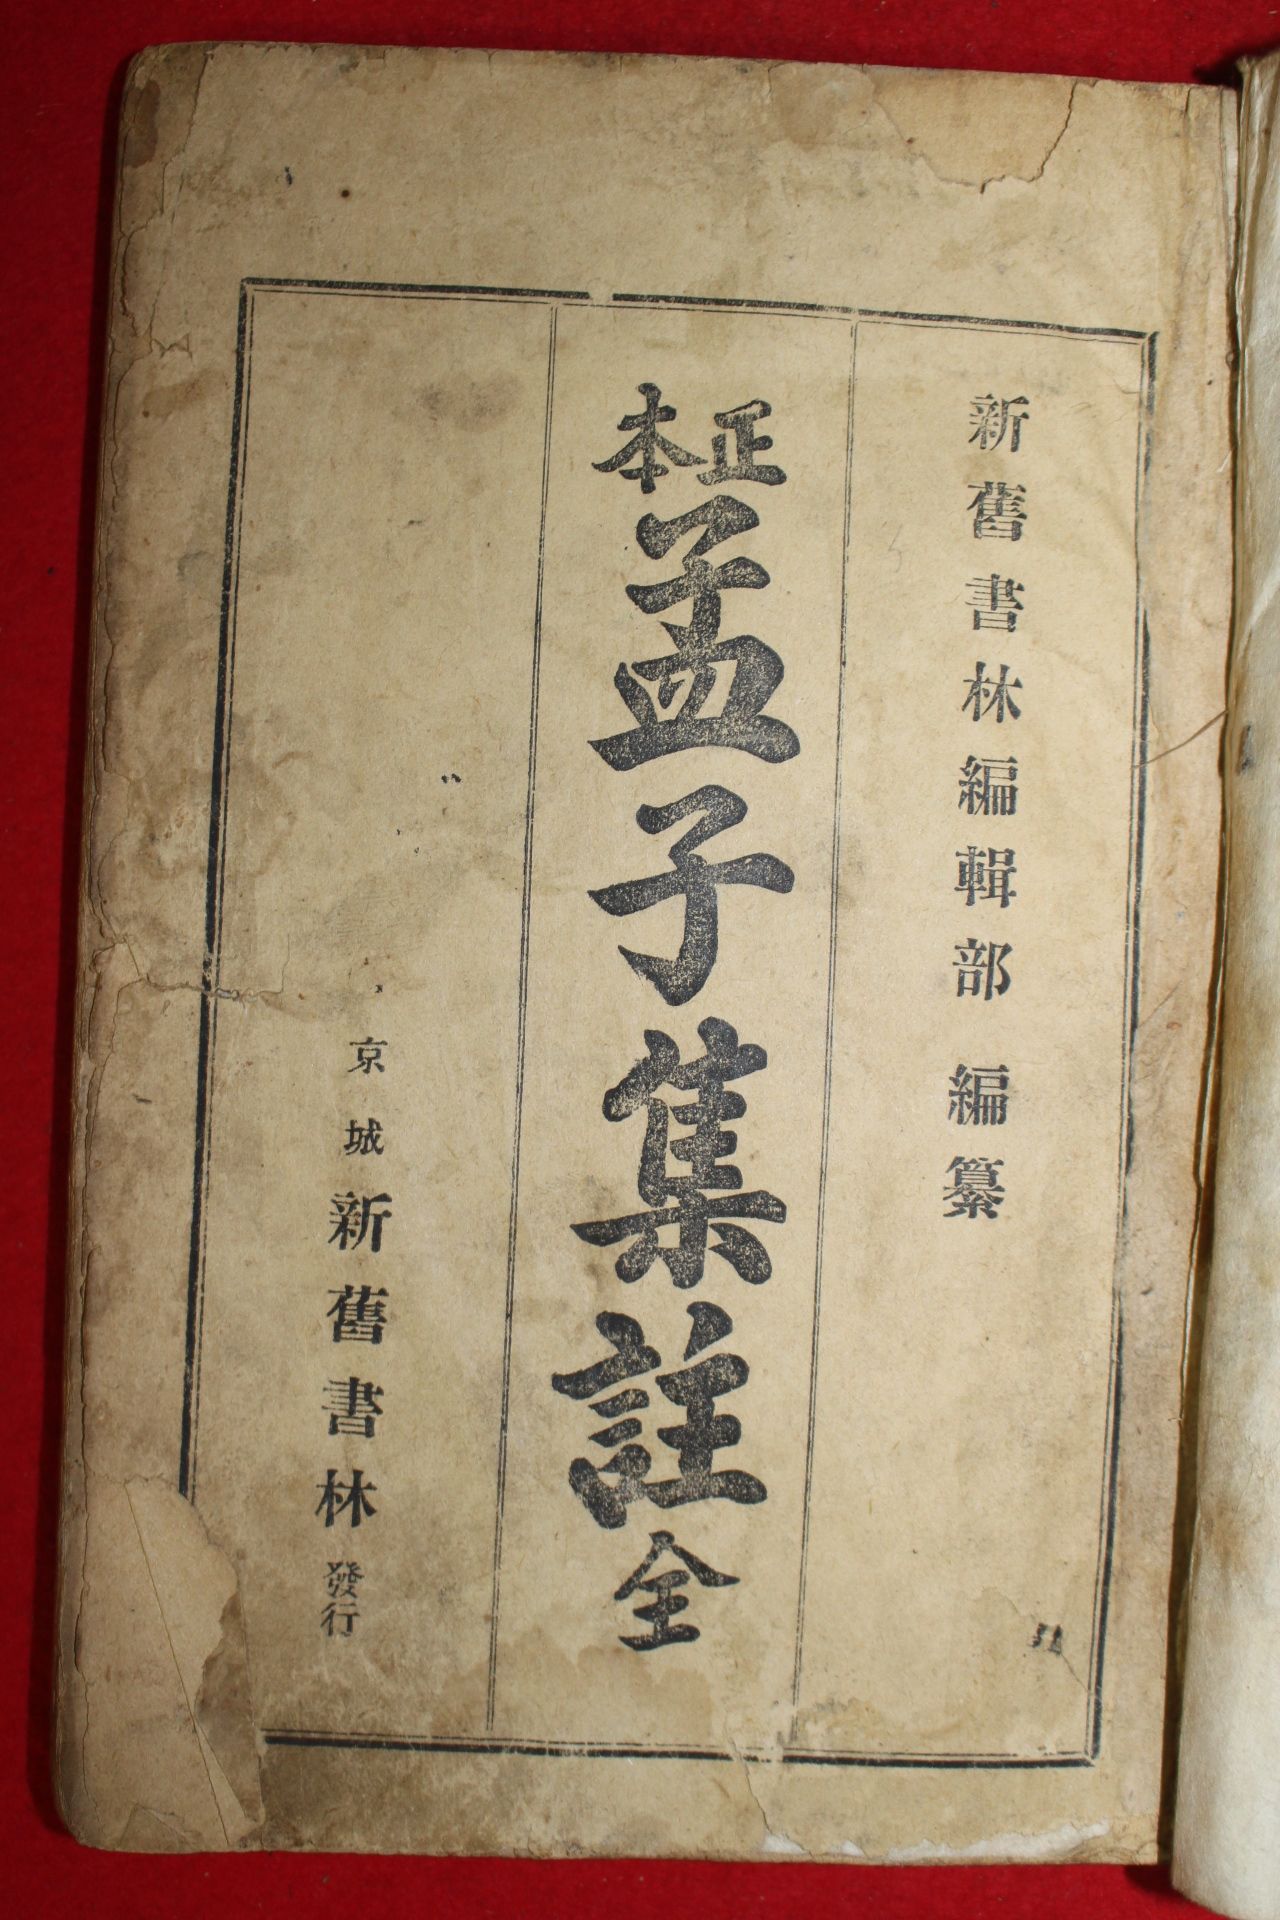 新舊書林編輯部 編纂
正本孟子集註全
京城新舊書林發行